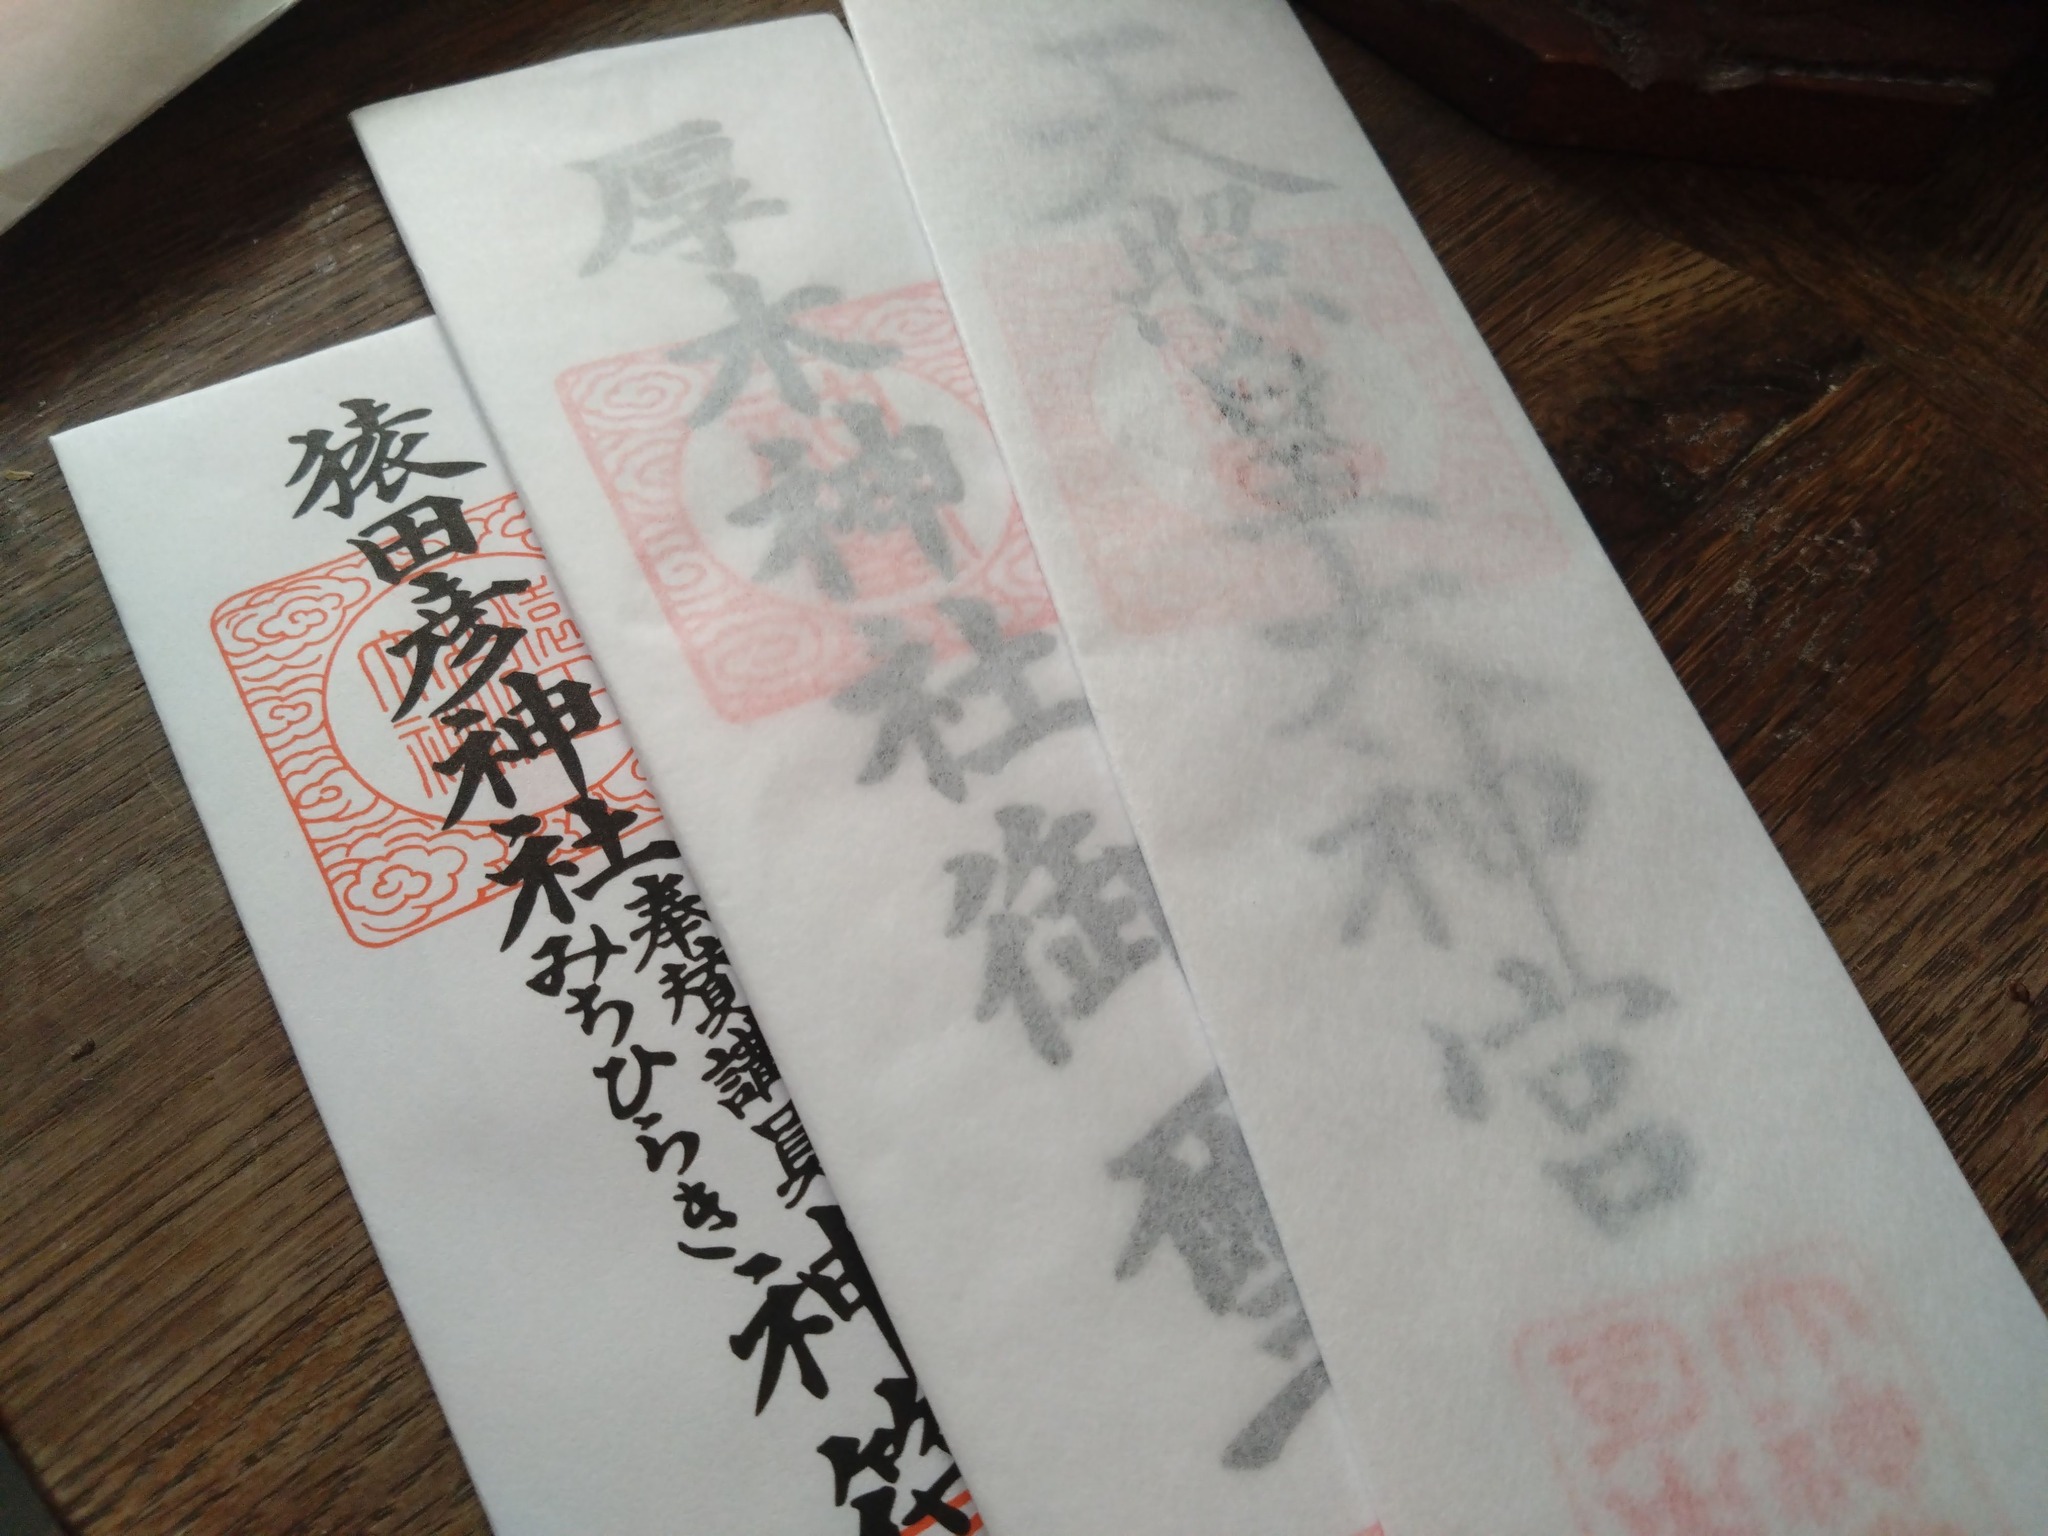 天照皇大神宮
厚木神社御璽
猿田彦神社
奉賛講員
みちひらき
神符